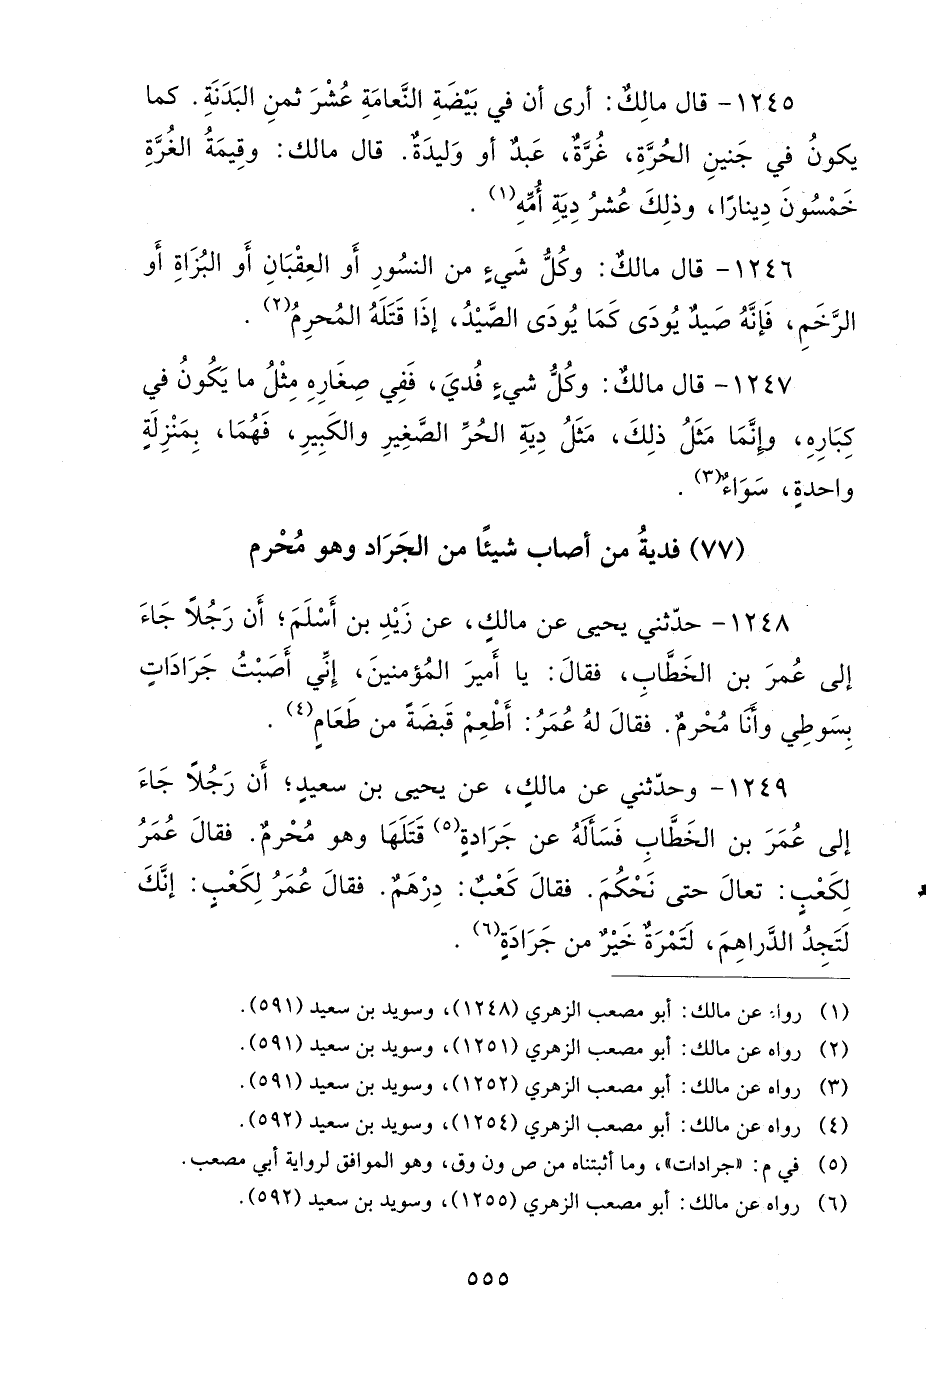 ١٢٤٥- قال مالِكٌ: أرى أن في بَيْضَةِ النَّعامَةِ عُشْرَ ثمنِ البَدَنَةِ. كما
يكونُ في جَنينِ الحُرَّةِ، غُرَّةٌ، عَبدٌ أو وَليدَةٌ. قال مالك: وقِيمَةُ الغُرَّةِ
خَمْسُونَ دِينارًا، وذلِكَ عُشرُ دِيَةِ أُمِّهِ(١).
١٢٤٦- قال مالكٌ: وكُلُّ شَيءٍ من النسُورِ أَو العِقْبَانِ أَو البُزَاةِ أَو
الرَّخَمِ، فَإنَّهُ صَيدٌ يُودَى كَمَا يُودَى الصَّيْدُ، إذَا قَتَلَهُ المُحرِمُ(٢).
١٢٤٧- قال مالكٌ: وكُلُّ شيءٍ فُديَ، فَفِي صِغَارِهِ مِثْلُ ما يَكُونُ في
كِبَارِهِ، وإنَّمَا مَثَلُ ذلِكَ، مَثَلُ دِيَةِ الحُرِّ الصَّغيرِ والكَبيرِ، فَهُمَا، بِمَنْزِلَةٍ
واحدةٍ، سَوَاءٌ(٣).
(٧٧) فديةُ من أصاب شيئًا من الجَرَاد وهو مُحْرم
١٢٤٨- حدّثني يحيى عن مالكٍ، عن زَيْدِ بن أَسْلَمَ؛ أن رَجُلاً جَاءَ
إلى عُمرَ بن الخَطَّابِ، فقالَ: يا أميرَ المُؤمنينَ، إنِّي أَصَبْتُ جَرَادَاتٍ
بِسَوطِي وأَنَا مُحْرمٌ. فقالَ لهُ عُمَرُ: أَطْعِمْ قَبضَةً من طَعَامٍ(٤).
١٢٤٩- وحدّثني عن مالكٍ، عن يحيى بن سعيدٍ؛ أن رَجُلاً جَاءَ
إلى عُمَرَ بن الخَطَّابِ فَسَأَلَهُ عن جَرَادةٍ(٥) قَتَلَهَا وهو مُحْرمٌ. فقالَ عُمَرُ
لِكَعْبٍ: تعالَ حتى نَحْكُمَ. فقالَ كَعْبٌ: دِرْهَمٌ. فقالَ عُمَرُ لِكَعْبٍ: إنَّكَ
لَتَجِدُ الدَّراهِمَ، لَتَمْرَةٌ خَيْرٌ من جَرَادَةٍ(٦).
(١) رواه عن مالك: أبو مصعب الزهري (١٢٤٨)، وسويد بن سعيد (٥٩١).
(٢) رواه عن مالك: أبو مصعب الزهري (١٢٥١)، وسويد بن سعيد (٥٩١).
(٣) رواه عن مالك: أبو مصعب الزهري (١٢٥٢)، وسويد بن سعيد (٥٩١).
(٤) رواه عن مالك: أبو مصعب الزهري (١٢٥٤)، وسويد بن سعيد (٥٩٢).
(٥) في م: «جرادات»، وما أثبتناه من ص ون وق، وهو الموافق لرواية أبي مصعب.
(٦) رواه عن مالك: أبو مصعب الزهري (١٢٥٥)، وسويد بن سعيد (٥٩٢).
٥٥٥